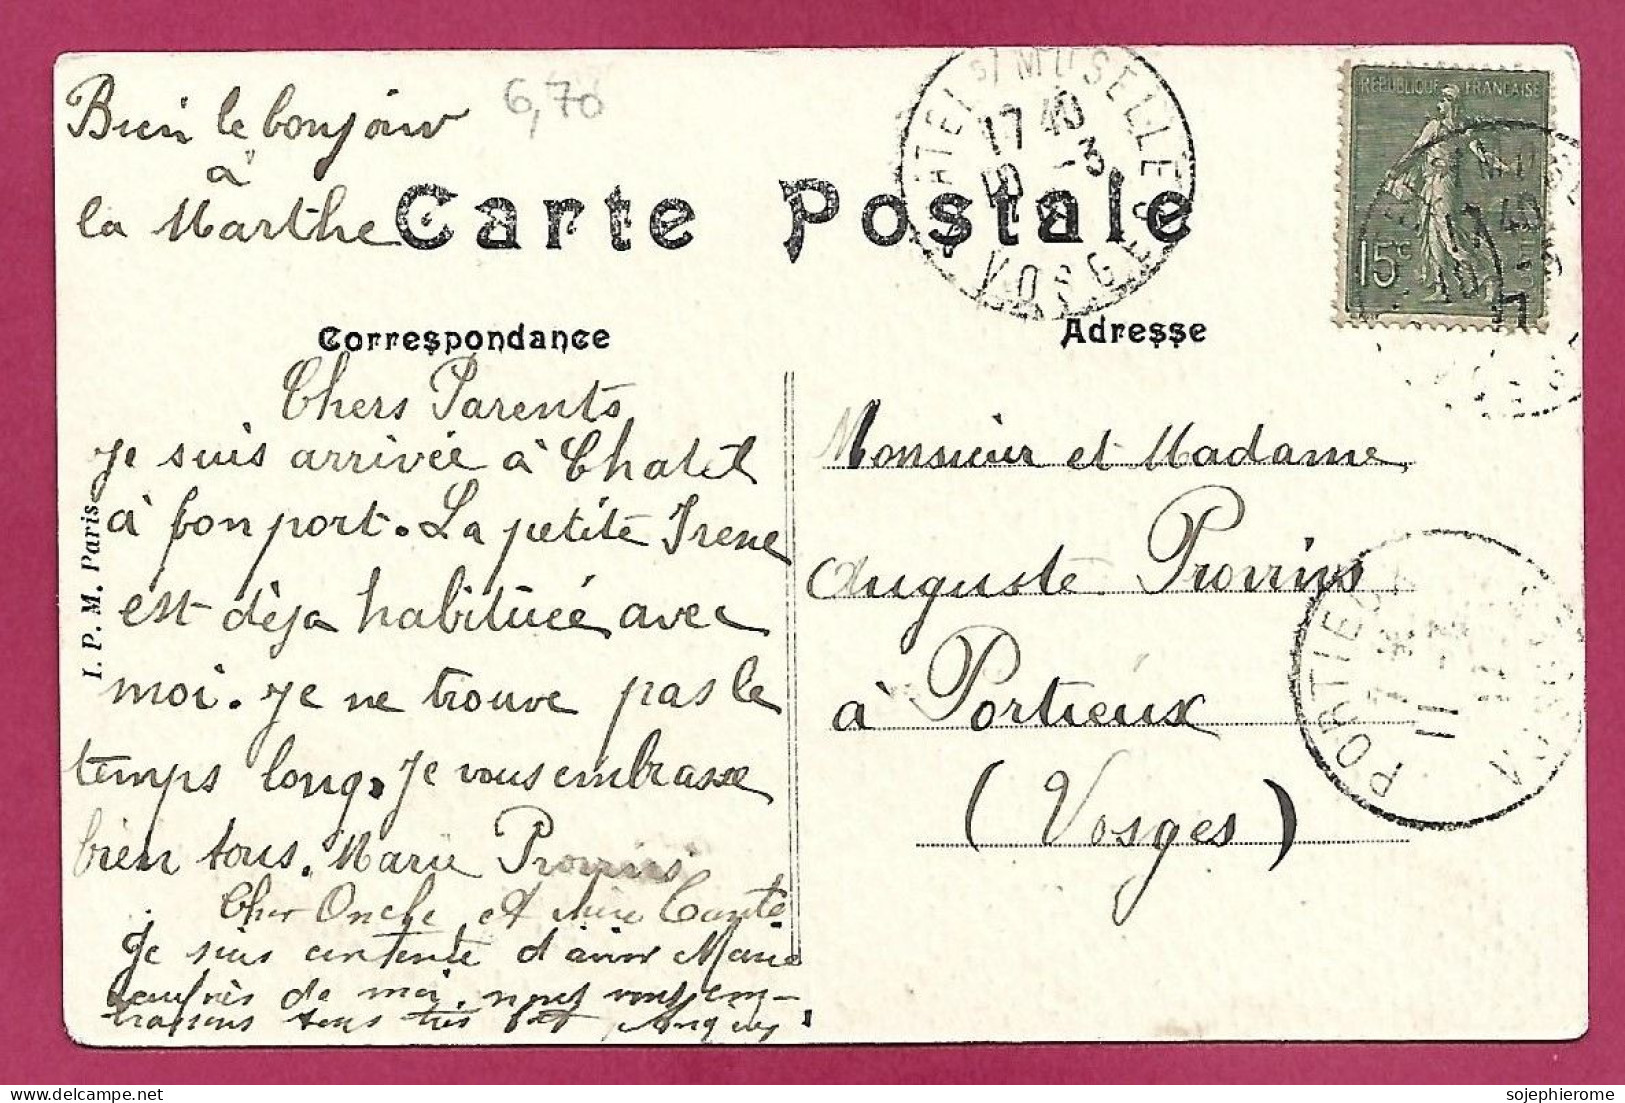 Bien le bonjour
à
la Marthe
6,70
Carte Postale
Correspondance
Chers Parents
Je suis arrivée à Chatel
à bon port. La petite Irene
est dèja habituée avec
moi. Je ne trouve pas le
temps long. Je vous embrasse
bien tous. Marie Provins
Cher Oncle et chère Tante
Je suis contente d'avoir Marie
auprès de moi. nous vous em-
brassons tous très
I. P. M. Paris
CHATEL S/ MOSELLE
17 40
10 -3
VOSGES
REPUBLIQUE FRANÇAISE
15c
17 40
Adresse
Monsieur et Madame
Auguste Provins
à Portieux
(Vosges)
PORTIEUX
11
sojephierome